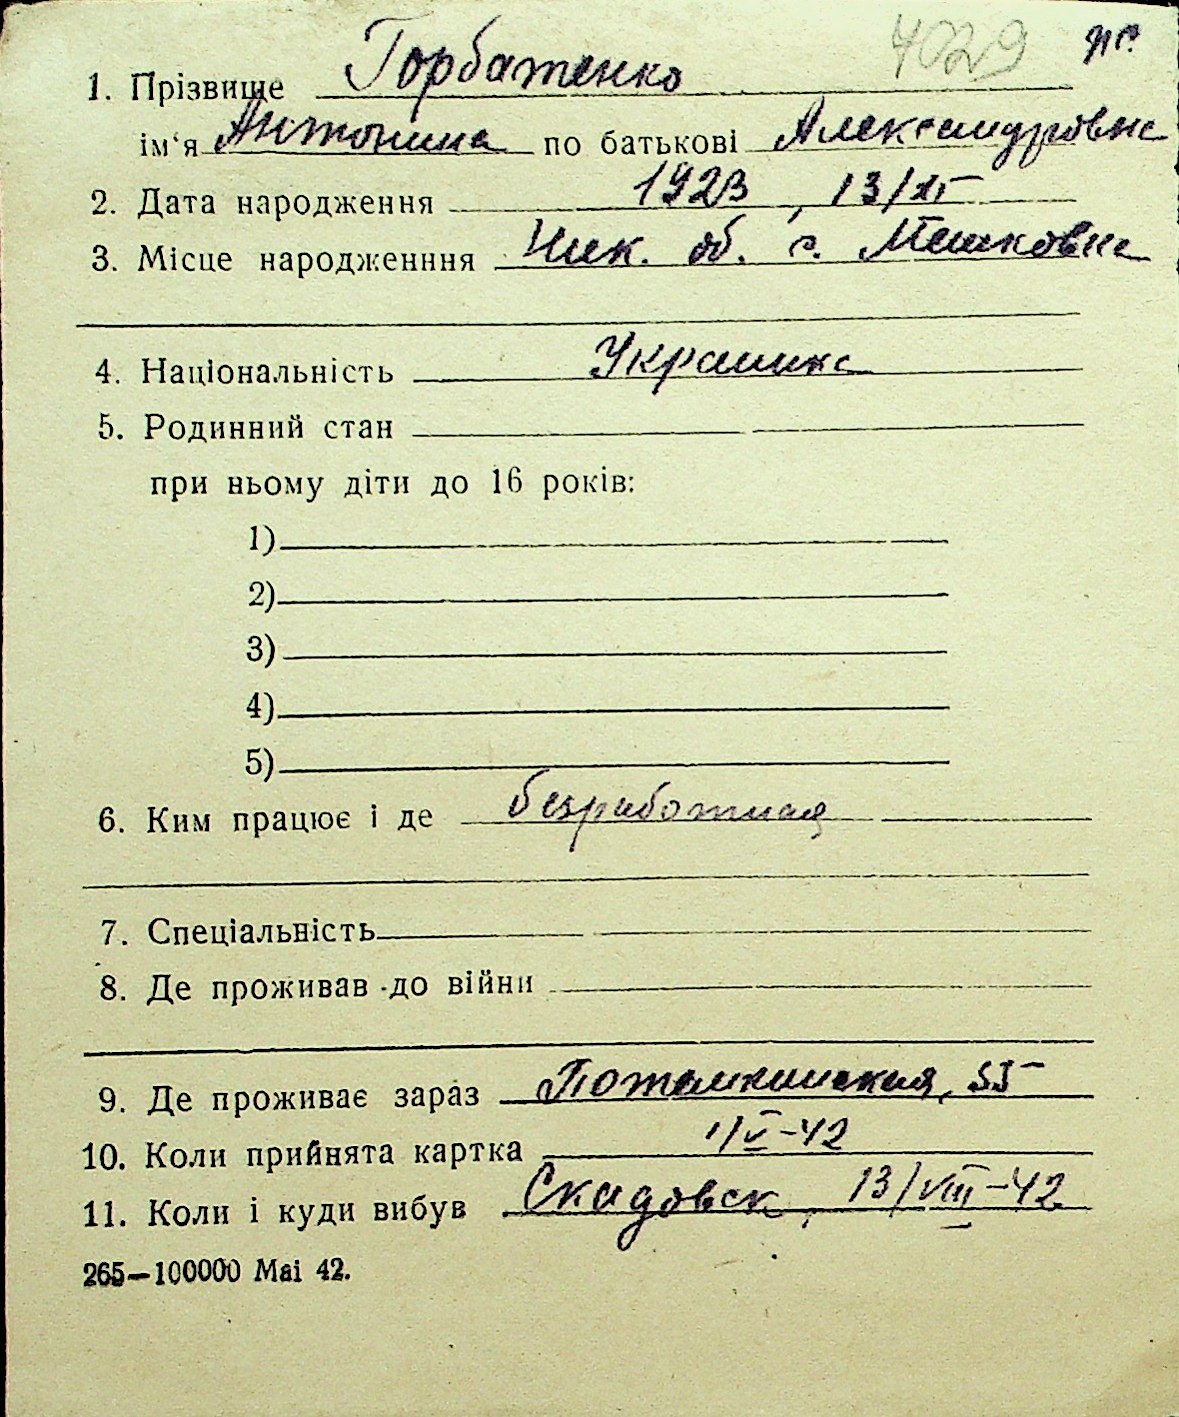 4029
1. Прізвище Горбатенко
ім'я Антонина по батькові Александровна
2. Дата народження 1923, 13/XI
3. Місце народженння Ник. об. с. Мешковка
4. Національність Украинка
5. Родинний стан
при ньому діти до 16 років:
1)
2)
3)
4)
5)
6. Ким працює і де безработная
7. Спеціальність
8. Де проживав до війни
9. Де проживає зараз Потемкинская, 55
10. Коли прийнята картка 1/V-42
11. Коли і куди вибув Скадовск, 13/VIII-42
265—100000 Mai 42.